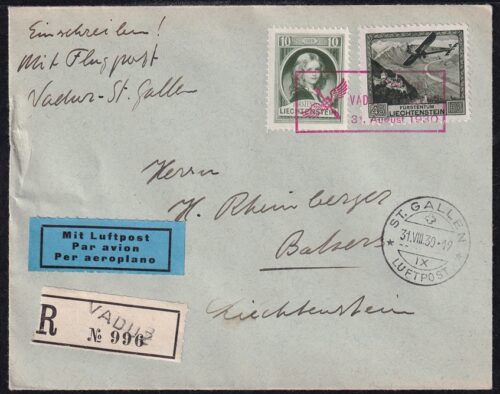 Einschreiben!
Mit Flugpost
Vaduz-St. Gallen
10 10
LIECHTENSTEIN
45 45
FÜRSTENTUM
LIECHTENSTEIN
VADUZ
31. August 1930
Herrn
H. Rheinberger
Balzers
Liechtenstein
Mit Luftpost
Par avion
Per aeroplano
ST. GALLEN
31.VIII.30-19
IX
LUFTPOST
R VADUZ
№ 996